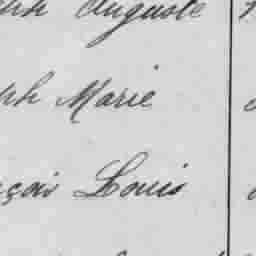 ph Auguste
ph Marie
çois Louis